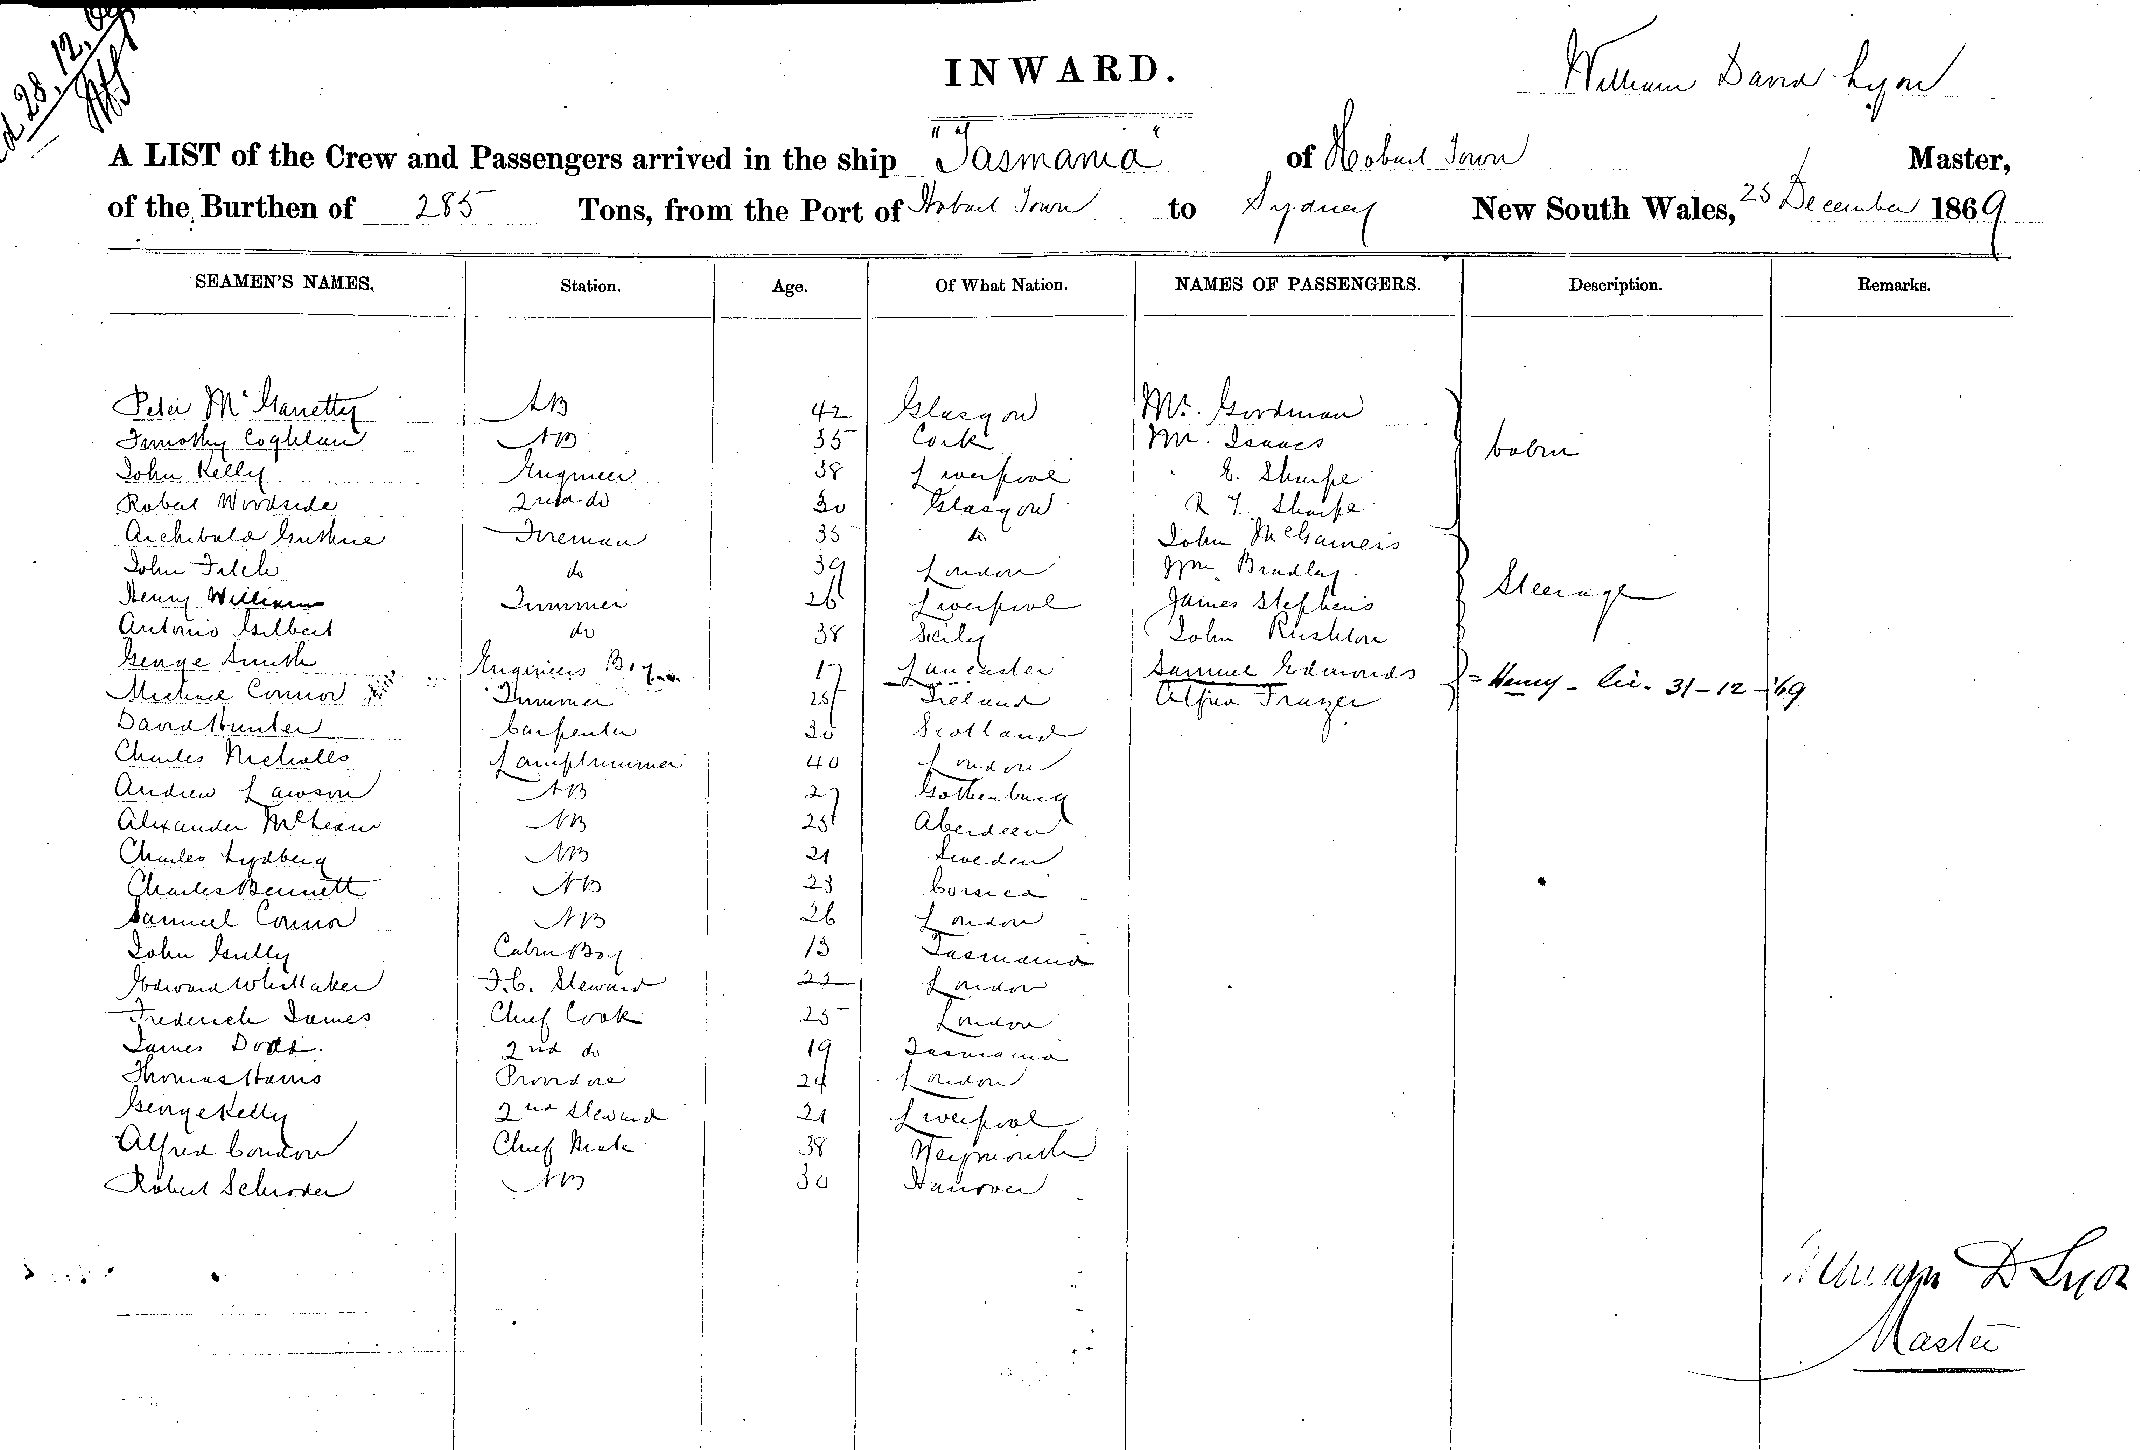 28.12.
INWARD.
William David Lyon
A LIST of the Crew and Passengers arrived in the ship "Tasmania" of Hobart Town Master,
of the Burthen of 285 Tons, from the Port of Hobart Town to Sydney New South Wales, 25 December 1869
SEAMEN'S NAMES. Station. Age. Of What Nation. NAMES OF PASSENGERS. Description. Remarks.
Peter McGarretty AB 42 Glasgow Mr. Goodman
Timothy Coghlan AB 35 Cork Mr. Isaacs Cabin
John Kelly Engineer 38 Liverpool " E. Sharpe
Robert Woodside 2nd do 30 Glasgow R T Sharpe
Archibald Guthrie Fireman 35 do John
John Fitch do 39 London Wm. Bradley
Henry William Trimmer 26 Liverpool James Stephens Steerage
Antonio Gilbert do 38 Sicily John Rushton
George Smith Engineers Boy 17 Lancaster Samuel Edmonds
Michael Connor Trimmer 25 Ireland Alfred Frazer = Henry - 31-12-'69
David Hunter Carpenter 30 Scotland
Charles Nicholls Lamptrimmer 40 London
Andrew Lawson AB 27 Gothenburg
Alexander McLean AB 25 Aberdeen
Charles Lydberg AB 21 Sweden
Charles Bennett AB 23 Corsica
Samuel Connor AB 26 London
John Gully Cabin Boy 13 Tasmania
Edward Whittaker F.C. Steward 22 London
Frederick James Chief Cook 25 London
James Dodd. 2nd do 19 Tasmania
Thomas Harris Providore 24 London
George Kelly 2nd Steward 21 Liverpool
Alfred Condon Chief Mate 38 Weymouth
Robert Schroder AB 30 Hanover
William D Lyon
Master